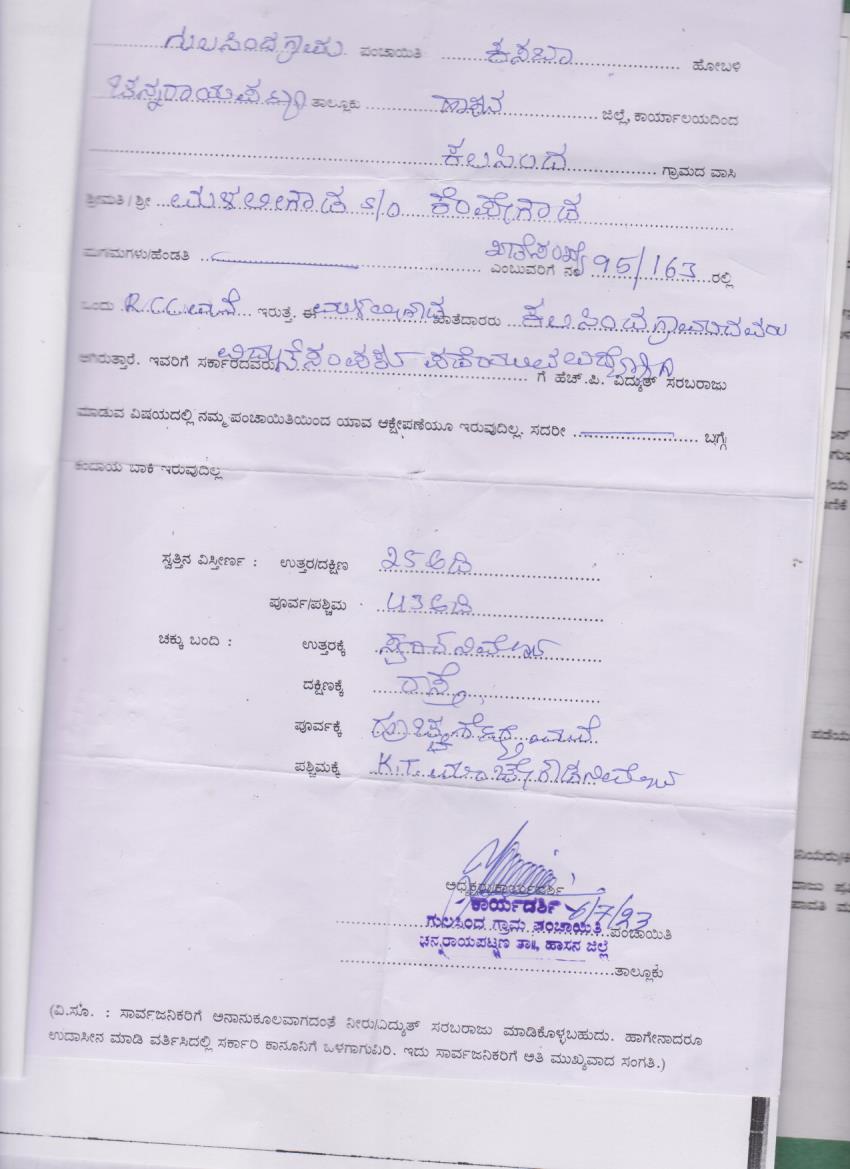 ಗುಲಸಿಂದ ಗ್ರಾಮ ಪಂಚಾಯಿತಿ ಕಸಬಾ ಹೋಬಳಿ
ಚನ್ನರಾಯಪಟ್ಣ ತಾಲ್ಲೂಕು ಹಾಸನ ಜಿಲ್ಲೆ, ಕಾರ್ಯಾಲಯದಿಂದ
ಕಲಸಿಂದ ಗ್ರಾಮದ ವಾಸಿ
ಶ್ರೀಮತಿ / ಶ್ರೀ ಮಳಲೀಗೌಡ S/O ಕೆಂಪೇಗೌಡ
ಮಗ/ಮಗಳು/ಹೆಂಡತಿ ಎಂಬುವರಿಗೆ ನಂ ಖಾತೆಸಂಖ್ಯೆ 95/163 ರಲ್ಲಿ
ಒಂದು R.C.C. ಮನೆ ಇರುತ್ತೆ. ಈ ಖಾತೆದಾರರು ಕಲಸಿಂದ ಗ್ರಾಮದವರು
ಆಗಿರುತ್ತಾರೆ. ಇವರಿಗೆ ಸರ್ಕಾರದವರು ಗೆ ಹೆಚ್.ಪಿ. ವಿದ್ಯುತ್ ಸರಬರಾಜು
ಮಾಡುವ ವಿಷಯದಲ್ಲಿ ನಮ್ಮ ಪಂಚಾಯಿತಿಯಿಂದ ಯಾವ ಆಕ್ಷೇಪಣೆಯೂ ಇರುವುದಿಲ್ಲ. ಸದರೀ ಬಗ್ಗೆ
ಕಂದಾಯ ಬಾಕಿ ಇರುವುದಿಲ್ಲ
ಸ್ವತ್ತಿನ ವಿಸ್ತೀರ್ಣ : ಉತ್ತರ/ದಕ್ಷಿಣ 25 ಅಡಿ
ಪೂರ್ವ/ಪಶ್ಚಿಮ 43 ಅಡಿ
ಚಕ್ಕು ಬಂದಿ : ಉತ್ತರಕ್ಕೆ
ದಕ್ಷಿಣಕ್ಕೆ ರಾಸ್ತೆ
ಪೂರ್ವಕ್ಕೆ ಮನೆ
ಪಶ್ಚಿಮಕ್ಕೆ K.T. ಮಂಚೇಗೌಡ
ಅಧ್ಯಕ್ಷರು/ಕಾರ್ಯದರ್ಶಿ
ಕಾರ್ಯದರ್ಶಿ 6/7/23
ಗುಲಸಿಂದ ಗ್ರಾಮ ಪಂಚಾಯಿತಿ ಪಂಚಾಯಿತಿ
ಚನ್ನರಾಯಪಟ್ಟಣ ತಾ॥, ಹಾಸನ ಜಿಲ್ಲೆ
ತಾಲ್ಲೂಕು
(ವಿ.ಸೂ. : ಸಾರ್ವಜನಿಕರಿಗೆ ಅನಾನುಕೂಲವಾಗದಂತೆ ನೀರು/ವಿದ್ಯುತ್ ಸರಬರಾಜು ಮಾಡಿಕೊಳ್ಳಬಹುದು. ಹಾಗೇನಾದರೂ
ಉದಾಸೀನ ಮಾಡಿ ವರ್ತಿಸಿದಲ್ಲಿ ಸರ್ಕಾರಿ ಕಾನೂನಿಗೆ ಒಳಗಾಗುವಿರಿ. ಇದು ಸಾರ್ವಜನಿಕರಿಗೆ ಅತಿ ಮುಖ್ಯವಾದ ಸಂಗತಿ.)